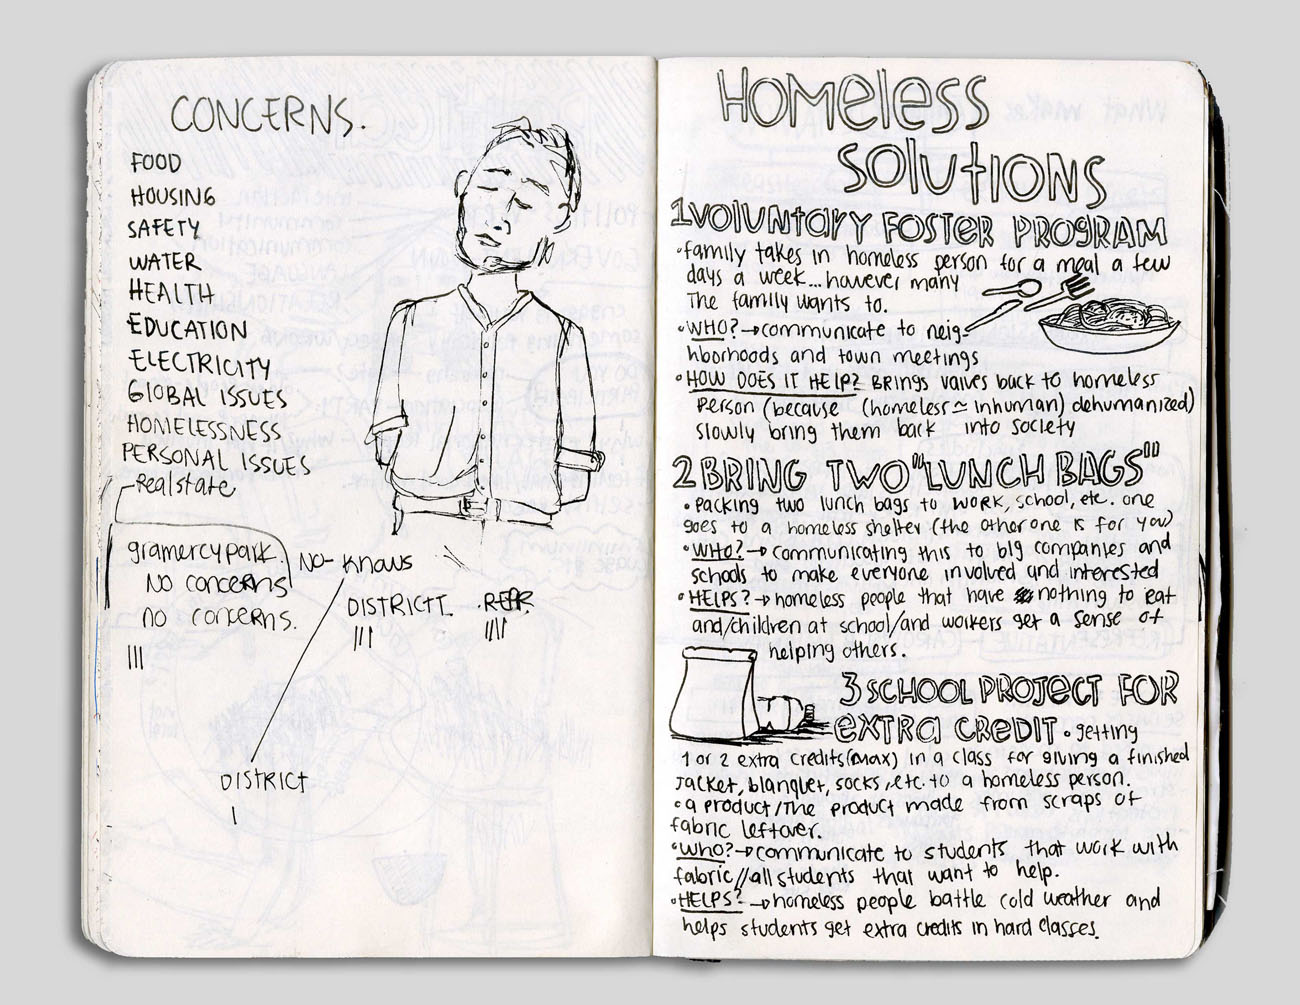 CONCERNS.
FOOD
HOUSING
SAFETY
WATER
HEALTH
EDUCATION
ELECTRICITY
GLOBAL ISSUES
HOMELESSNESS
PERSONAL ISSUES
-realstate
gramercy park
NO concerns
no concerns.
|||
NO- Knows
DISTRICTT.
|||
||||
DISTRICT
|
HOMELESS
SOLUTIONS
1 VOLUNTARY FOSTER PROGRAM
•family takes in homeless person for a meal a few
days a week...however many
The family wants to.
•WHO?→communicate to neig-
hborhoods and town meetings
•HOW DOES IT HELP? Brings values back to homeless
person (because (homeless ≃ inhuman) dehumanized)
slowly bring them back into society
2 BRING TWO "LUNCH BAGS"
•packing two lunch bags to work, school, etc. one
goes to a homeless shelter (the other one is for you)
•WHO?→communicating this to big companies and
schools to make everyone involved and interested
•HELPS?→homeless people that have nothing to eat
and/children at school/and workers get a sense of
helping others.
3 SCHOOL PROJECT FOR
EXTRA CREDIT •getting
1 or 2 extra credits(max) in a class for giving a finished
jacket, blanquet, socks, etc. to a homeless person.
•a product/The product made from scraps of
fabric leftover.
•WHO?→communicate to students that work with
fabric//all students that want to help.
•HELPS?→homeless people battle cold weather and
helps students get extra credits in hard classes.